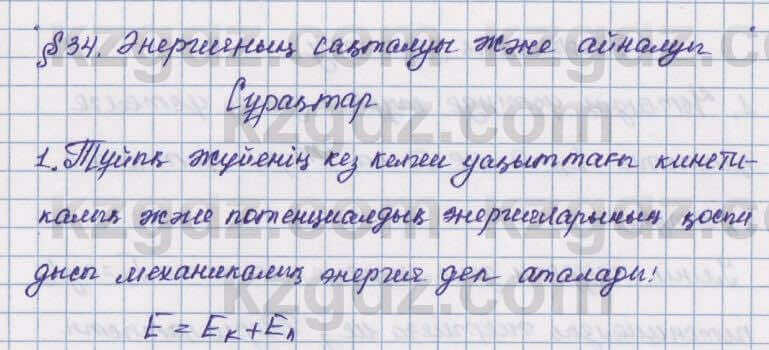 §34. Энергияның сақталуы және айналуы
Сұрақтар
1. Тұйық жүйенің кез келген уақыттағы кинети-
калық және потенциалдық энергияларының қосын
дысы механикалық энергия деп аталады!
E = Eк + Eп
kzgdz.com